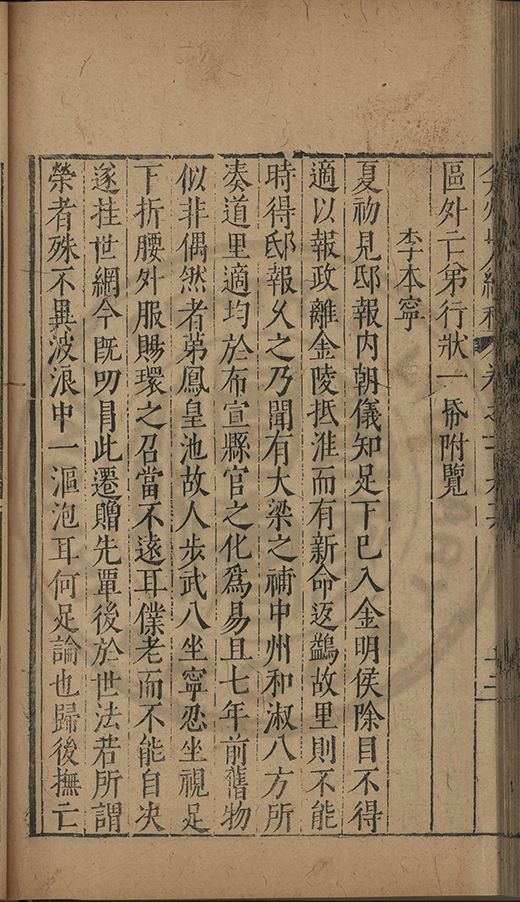 區外亡弟行狀一帋附覽
李本寧
夏初見邸報内朝儀知足下已入金明侯除目不得
適以報政離金陵抵淮而有新命返鷁故里則不能
時得邸報久之乃聞有大梁之補中州和淑八方所
奏道里適均於布宣縣官之化爲易且七年前舊物
似非偶然者第鳳皇池故人步武八坐寧忍坐視足
下折腰外服賜環之召當不遠耳僕老而不能自决
遂挂世網今旣叨冐此遷贈先單後於世法若所謂
榮者殊不異波浪中一漚泡耳何足論也歸後撫亡